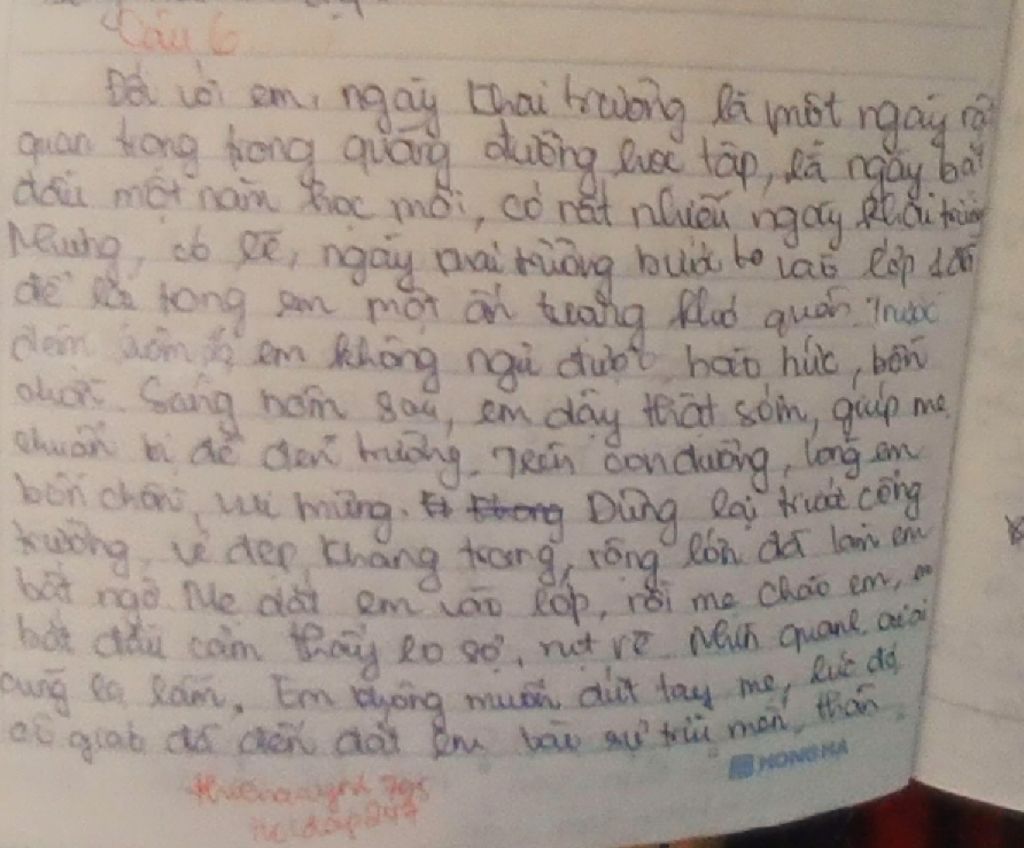 Câu 6
Đối với em, ngày khai trường là một ngày rất
quan trọng trong quãng đường học tập, là ngày bắt
đầu một năm học mới, có rất nhiều ngày khai trường
Nhưng, có lẽ, ngày khai trường bước vào lớp
để lại trong em một ấn tượng khó quên. Trước
đêm hôm đó em không ngủ được háo hức, bồn
chồn. Sáng hôm sau, em dậy thật sớm, giúp mẹ
chuẩn bị để đến trường. Trên con đường, lòng em
bồn chồn, vui mừng. Dừng lại trước cổng
trường, vẻ đẹp khang trang, rộng lớn đã làm em
bất ngờ. Mẹ dắt em vào lớp, rồi mẹ chào em, em
bắt đầu cảm thấy lo sợ, rụt rè. Nhìn quanh, ai ai
cũng lạ lẫm. Em không muốn dứt tay mẹ, lúc đó
cô giáo đã đến dắt em vào sự trìu mến, thân
HONG HA